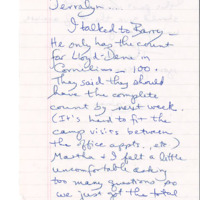 Jerralyn...
I talked to Barry -
He only has the count
for Lloyd-Dene in
Cornelius - 100...
They said they should
have the complete
count by next week.
(It's hard to fit the
camp visits between
the office appts., etc.)
Martha & I felt a little
uncomfortable asking
too many questions so
we just get the total